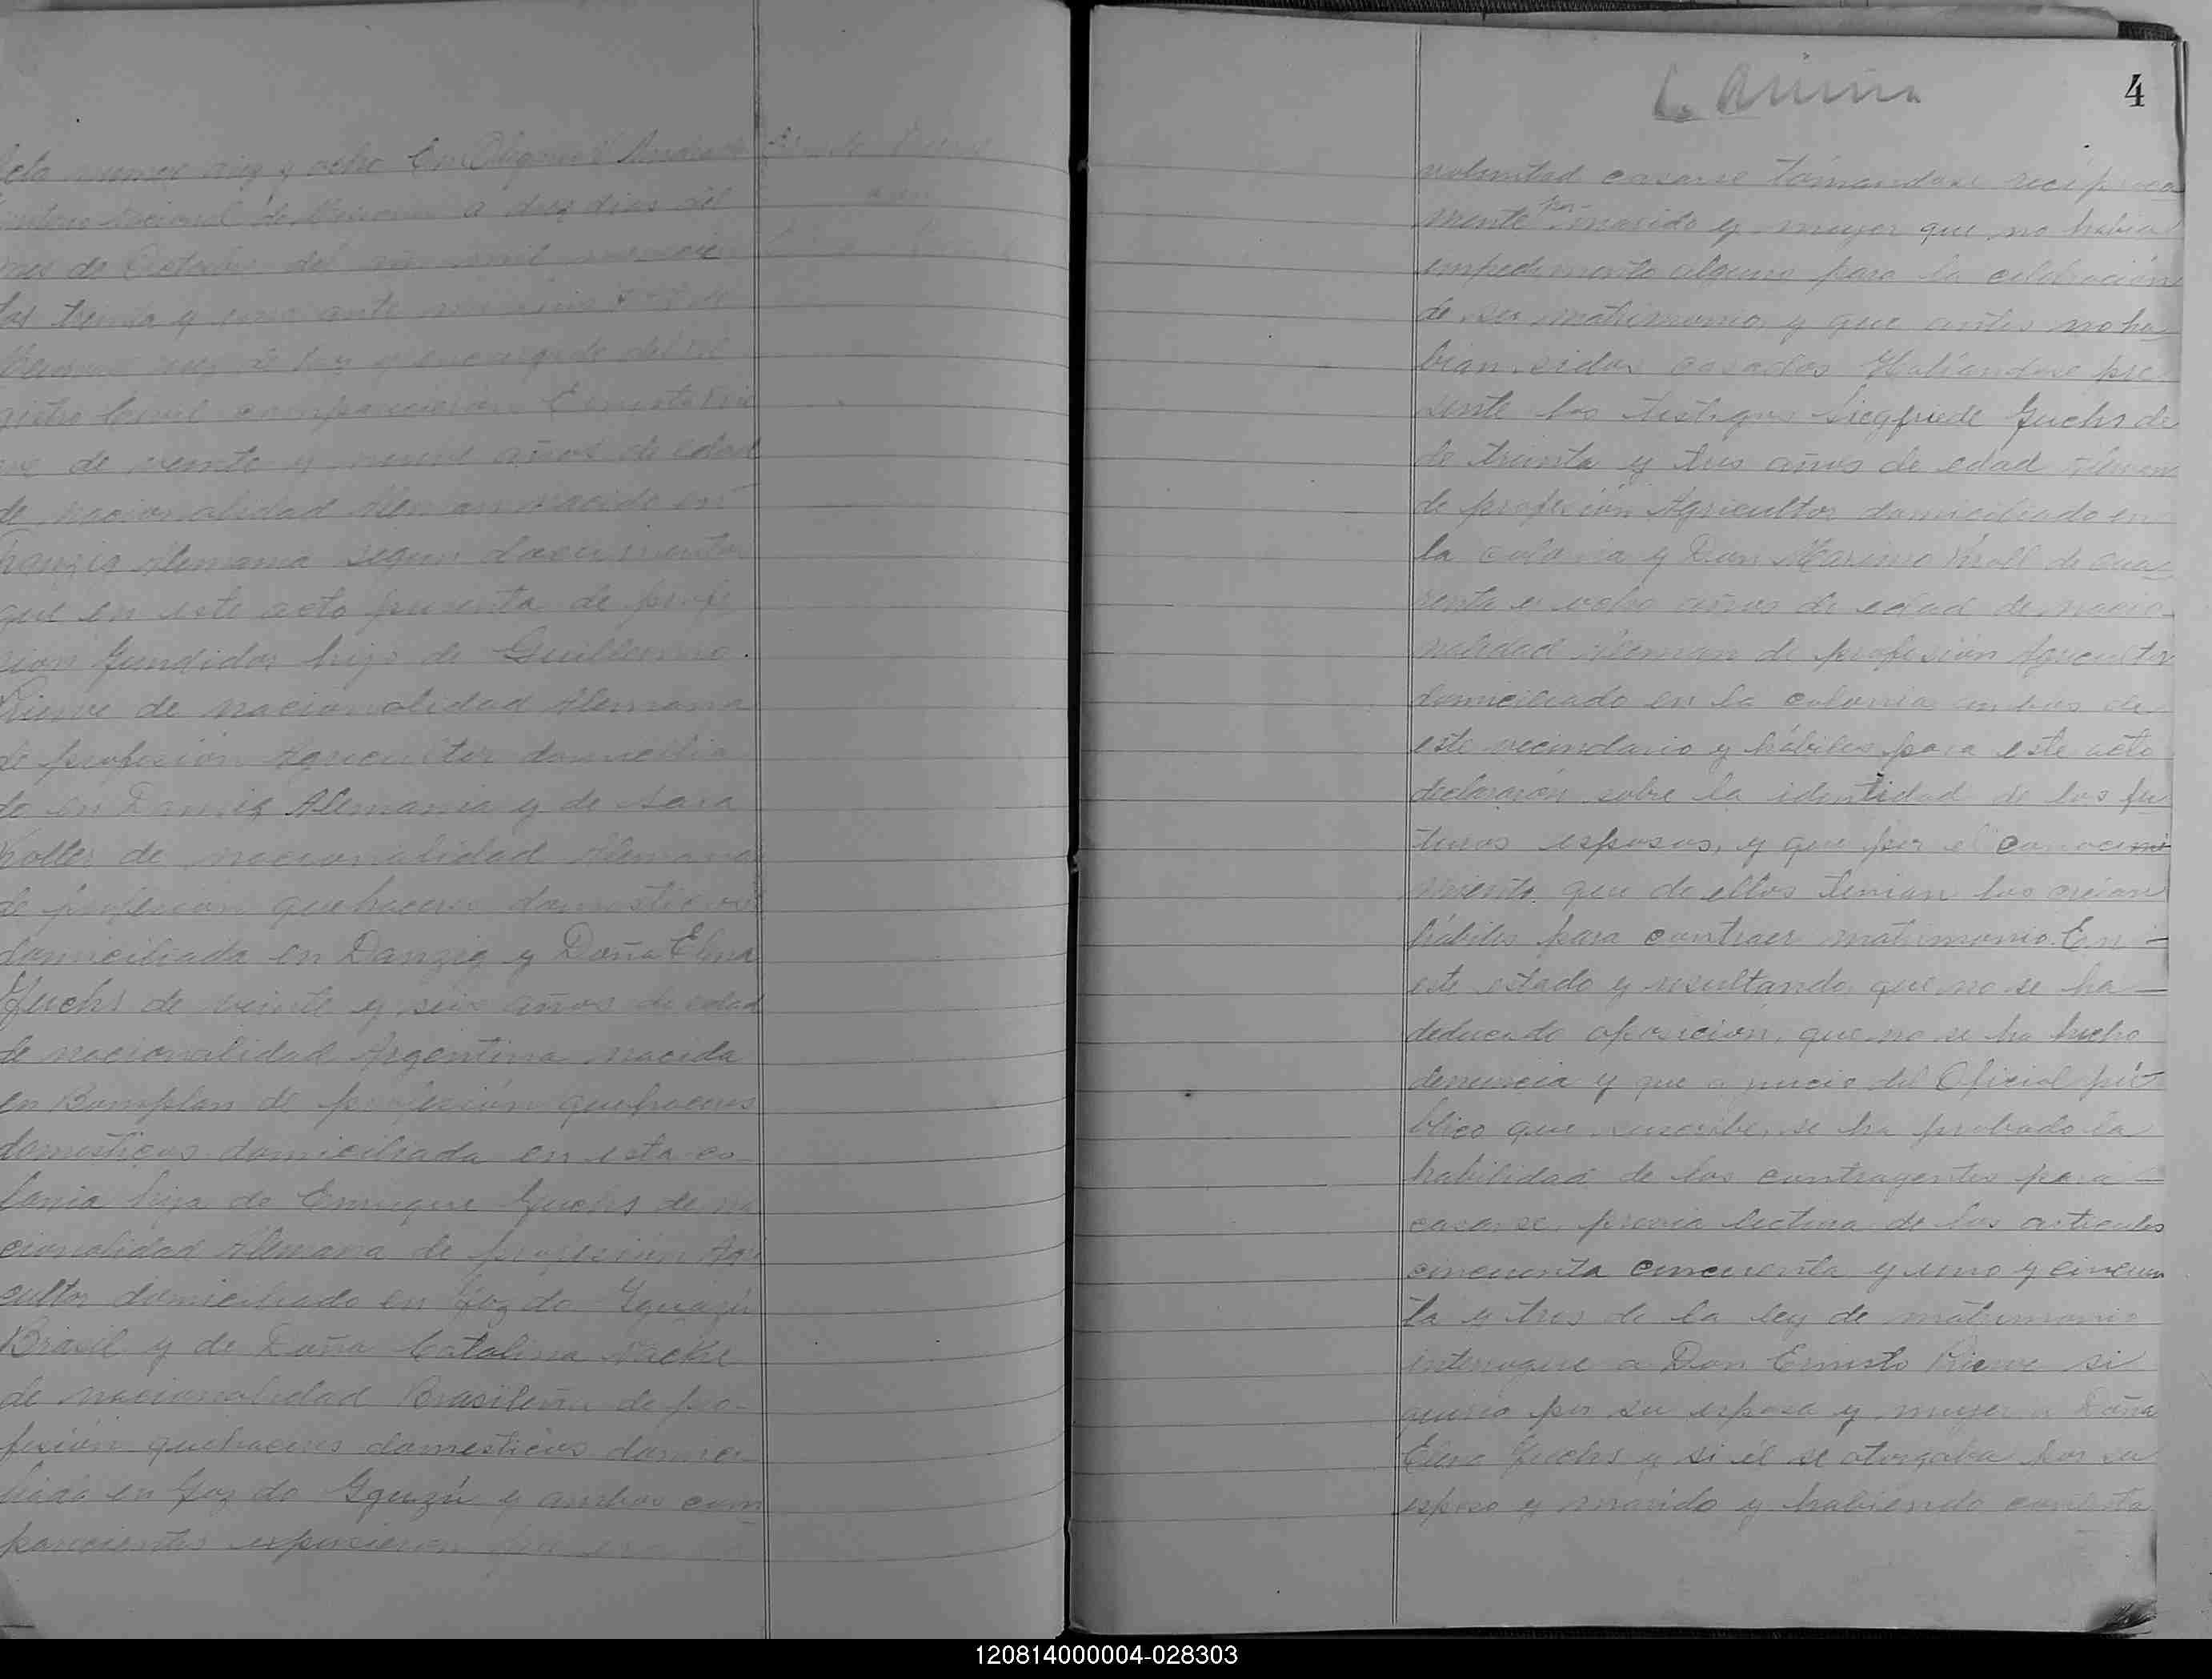 Acta numero diez y ocho En
Nacional de Misiones a diez dias del
mes de Octubre del mil novecien
tos treinta y uno ante
Juez de Paz y encargado del Re
gistro Civil comparecieron Ernesto
de veinte y nueve años de edad
de nacionalidad Aleman nacido en
Danzig Alemania segun documento
que en este acto presenta de profe
sion fundidor hijo de Guillermo
Rieme de nacionalidad Alemana
de profesión Agricultor domicilia
do en Danzig Alemania y de Sara
de nacionalidad Alemana
de profesion quehaceres domesticos
domiciliada en Danzig y Doña Elma
Fuchs de veinte y seis años de edad
de nacionalidad Argentina nacida
en Bomplan de profesión quehaceres
domesticos domiciliada en esta co
lonia hija de Enrique Fuchs de na
cionalidad Alemana de profesión Agri
cultor domiciliado en Foz do Yguazú
Brasil y de Doña Catalina
de nacionalidad Brasileña de pro-
fesión quehaceres domesticos domici
liada en Foz do Yguazú y ambos com
parecientes expusieron que era
4
voluntad casarse tomandose reciproca
mente por marido y mujer que no habia
impedimento alguno para la celebración
de su matrimonio y que antes no ha
bian sidos casados Hallandose pre
sente los testigos Siegfriede Fuchs de
de treinta y tres años de edad Aleman
de profesión Agricultor domiciliado en
la colonia y Don Maximo Kroll de cua
renta y ocho años de edad de nacio
nalidad Aleman de profesión Agricultor
domiciliado en la colonia ambos de
este vecindario y hábiles para este acto
declararon sobre la identidad de los fu
turos esposos, y que por el conocimi
miento que de ellos tenian los creian
hábiles para contraer matrimonio. En
este estado y resultando que no se ha
deducido oposición, que no se ha hecho
denuncia y que a juicio del Oficial pú
blico que suscribe, se ha probado la
habilidad de los contrayentes para
casarse, previa lectura de los articulos
cincuenta cincuenta y uno y cincuen
ta y tres de la ley de matrimonio
interrogue a Don Ernesto Rieme si
queria por su esposa y mujer a Doña
Elma Fuchs y si él se otorgaba por su
esposo y marido y habiendo contesta
120814000004-028303